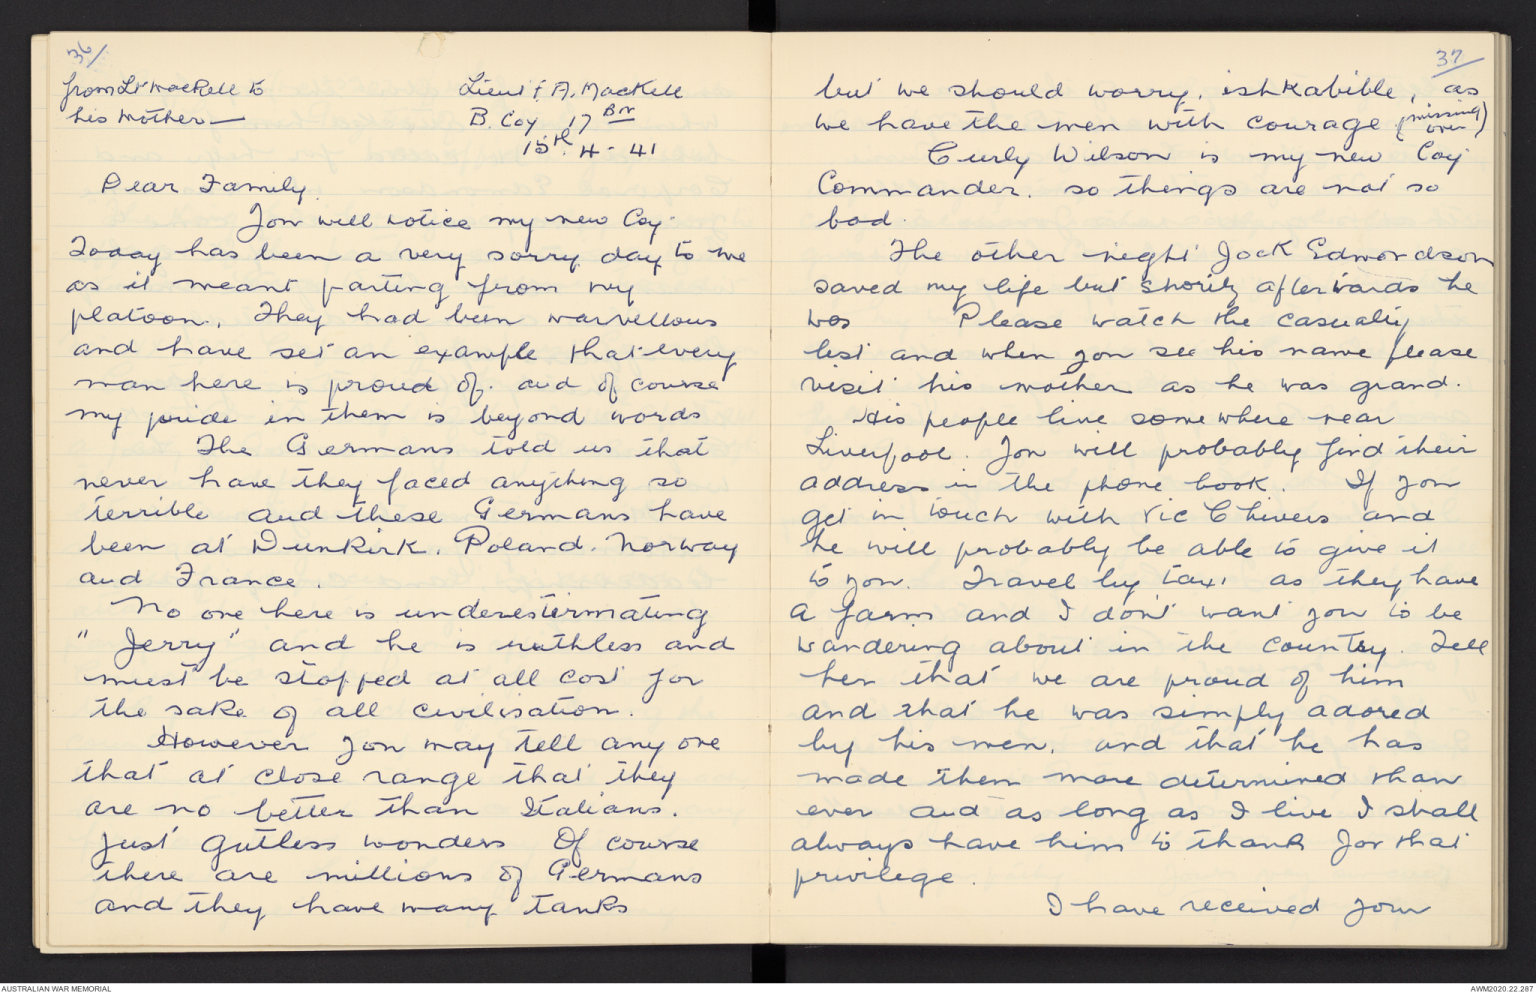 36/
from Lt Mackell to
his Mother —
Lieut F. A. Mackell
B. Coy 17 Bn
15th. 4 - 41
Dear Family.
You will notice my new Coy.
Today has been a very sorry day to me
as it meant parting from my
platoon. They had been marvellous
and have set an example that every
man here is proud of. and of course
my pride in them is beyond words
The Germans told us that
never have they faced anything so
terrible and these Germans have
been at Dunkirk, Poland, Norway
and France.
No one here is underestimating
"Jerry" and he is ruthless and
must be stopped at all cost for
the sake of all civilisation.
However you may tell any one
that at close range that they
are no better than Italians.
Just gutless wonders Of course
there are millions of Germans
and they have many tanks
37
but we should worry, ishkabible, as
we have the men with courage (missing
over)
Curly Wilson is my new Coy
Commander. so things are not so
bad.
The other night Jack Edmondson
saved my life but shortly afterwards he
was Please watch the casualty
list and when you see his name please
visit his mother as he was grand.
His people live somewhere near
Liverpool. You will probably find their
address in the phone book. If you
get in touch with Vic Chivers and
he will probably be able to give it
to you. Travel by taxi as they have
a farm and I don't want you to be
wandering about in the country. Tell
her that we are proud of him
and that he was simply adored
by his men. and that he has
made them more determined than
ever and as long as I live I shall
always have him to thank for that
privilege.
I have received your
AUSTRALIAN WAR MEMORIAL
AWM2020.22.287